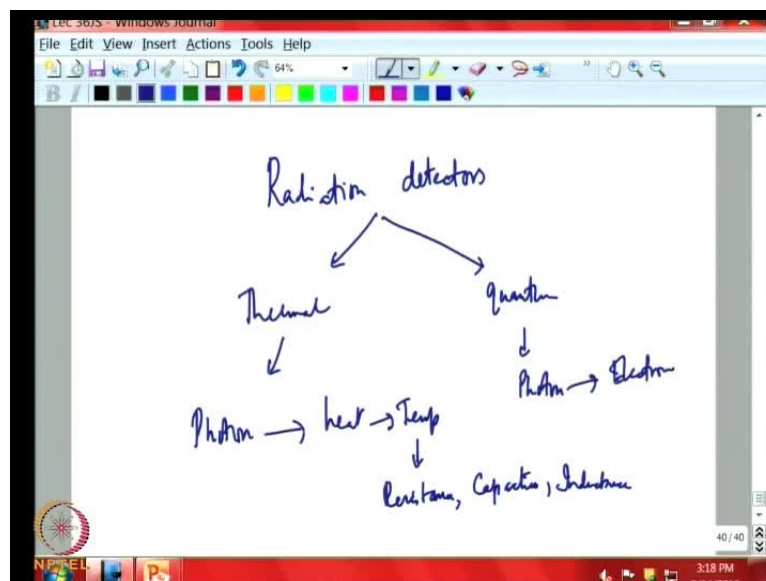 Lec 36JS - Windows Journal
File Edit View Insert Actions Tools Help
64%
B I
Radiation detectors
Thermal quantum
Photon → Electron
Photon → heat → Temp
Resistance, Capacitance, Inductance
40 / 40
NPTEL
3:18 PM